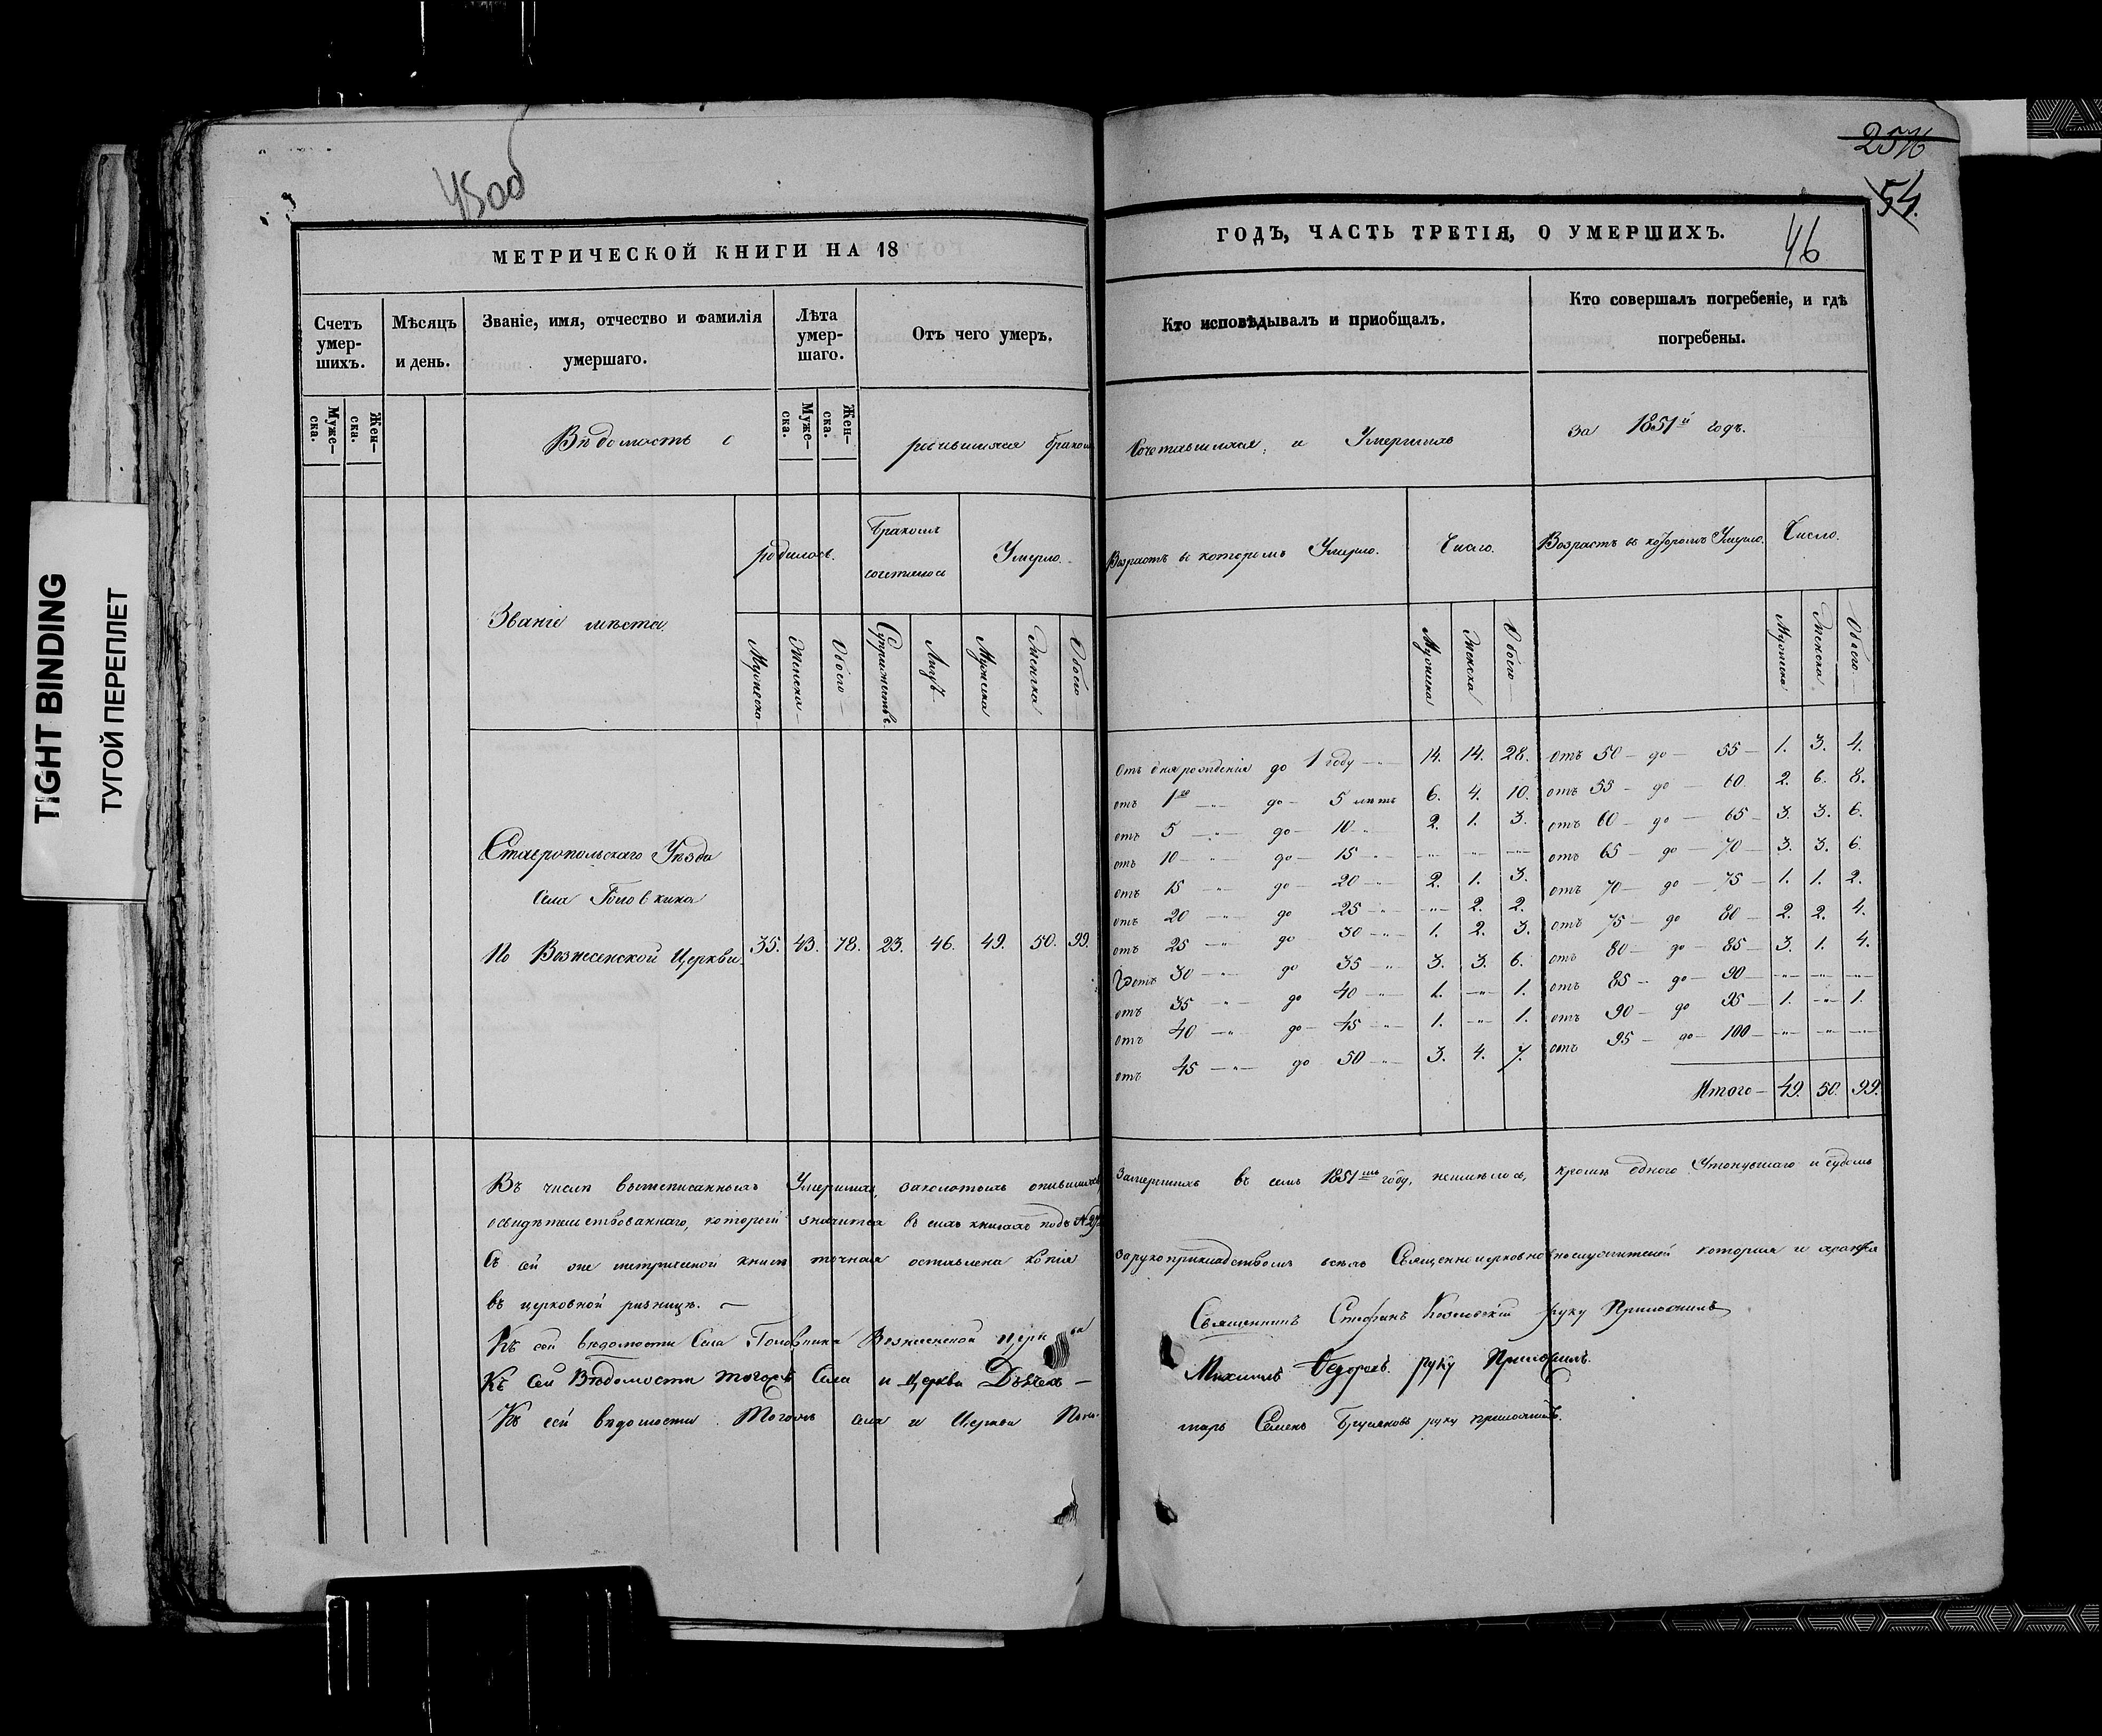 TIGHT BINDING
ТУГОЙ ПЕРЕПЛЕТ
45об
МЕТРИЧЕСКОЙ КНИГИ НА 18
Счетъ умер-шихъ.
Мѣсяцъ и день.
Званіе, имя, отчество и фамилія умершаго.
Лѣта умер-шаго.
Отъ чего умеръ.
Муже-ска.
Жен-ска.
Муже-ска.
Жен-ска.
Вѣдомость о родившихся бракомъ
Званіе мѣста.
родилось.
Бракомъ сочеталось
Умерло.
Мужеска
Женска
Обоего
Супружествъ
Лицъ
Мужеска
Женска
Обоего
Ставропольскаго Уѣзда
Села Головкина
По Вознесенской Церкви. 35. 43. 78. 23. 46. 49. 50. 99.
Въ числѣ вышеписанныхъ Умершихъ, заколотыхъ опившихся,
освидѣтельствованнаго, который значится въ сихъ книгахъ подъ № 27
Съ сей же метрической книги точная оставлена копія
въ церковной ризницѣ.
Къ сей вѣдомости Села Головкина Вознесенской церкви
Къ сей Вѣдомости тогожъ Села и Церкви Дьячекъ
Къ сей вѣдомости Тогожъ села и Церкви Поно-
54.
46
ГОДЪ, ЧАСТЬ ТРЕТІЯ, О УМЕРШИХЪ.
Кто исповѣдывалъ и приобщалъ.
Кто совершалъ погребеніе, и гдѣ погребены.
Сочетавшихся, и Умершихъ
за 1851й годъ.
Возрастъ въ которомъ Умерло.
Число.
Возрастъ въ которомъ Умерло.
Число.
Мужеска
Женска
Обоего
Мужеска
Женска
Обоего
Отъ дня рожденія до 1 году 14. 14. 28.
отъ 1го до 5 лѣтъ 6. 4. 10.
отъ 5 до 10 2. 1. 3.
отъ 10 до 15
отъ 15 до 20 2. 1. 3.
отъ 20 до 25 2. 2.
отъ 25 до 30 1. 2. 3.
отъ 30 до 35 3. 3. 6.
отъ 35 до 40 1. 1.
отъ 40 до 45 1. 1.
отъ 45 до 50 3. 4. 7.
отъ 50 до 55 1. 3. 4.
отъ 55 до 60. 2. 6. 8.
отъ 60 до 65 3. 3. 6.
отъ 65 до 70 3. 3. 6.
отъ 70 до 75 1. 1. 2.
отъ 75 до 80 2. 2. 4.
отъ 80 до 85 3. 1. 4.
отъ 85 до 90
отъ 90 до 95 1. 1.
отъ 95 до 100
Итого 49. 50. 99.
Замерзшихъ въ семъ 1851мъ году, неимѣлось, кромѣ одного Утонувшаго и судомъ
зарукоприкладствомъ всѣхъ Священноцерковнослужителей которая и хранится
Священникъ Стефанъ Козловскій руку Приложилъ
Михаилъ Федоровъ руку Приложилъ.
марь Семенъ руку приложилъ.